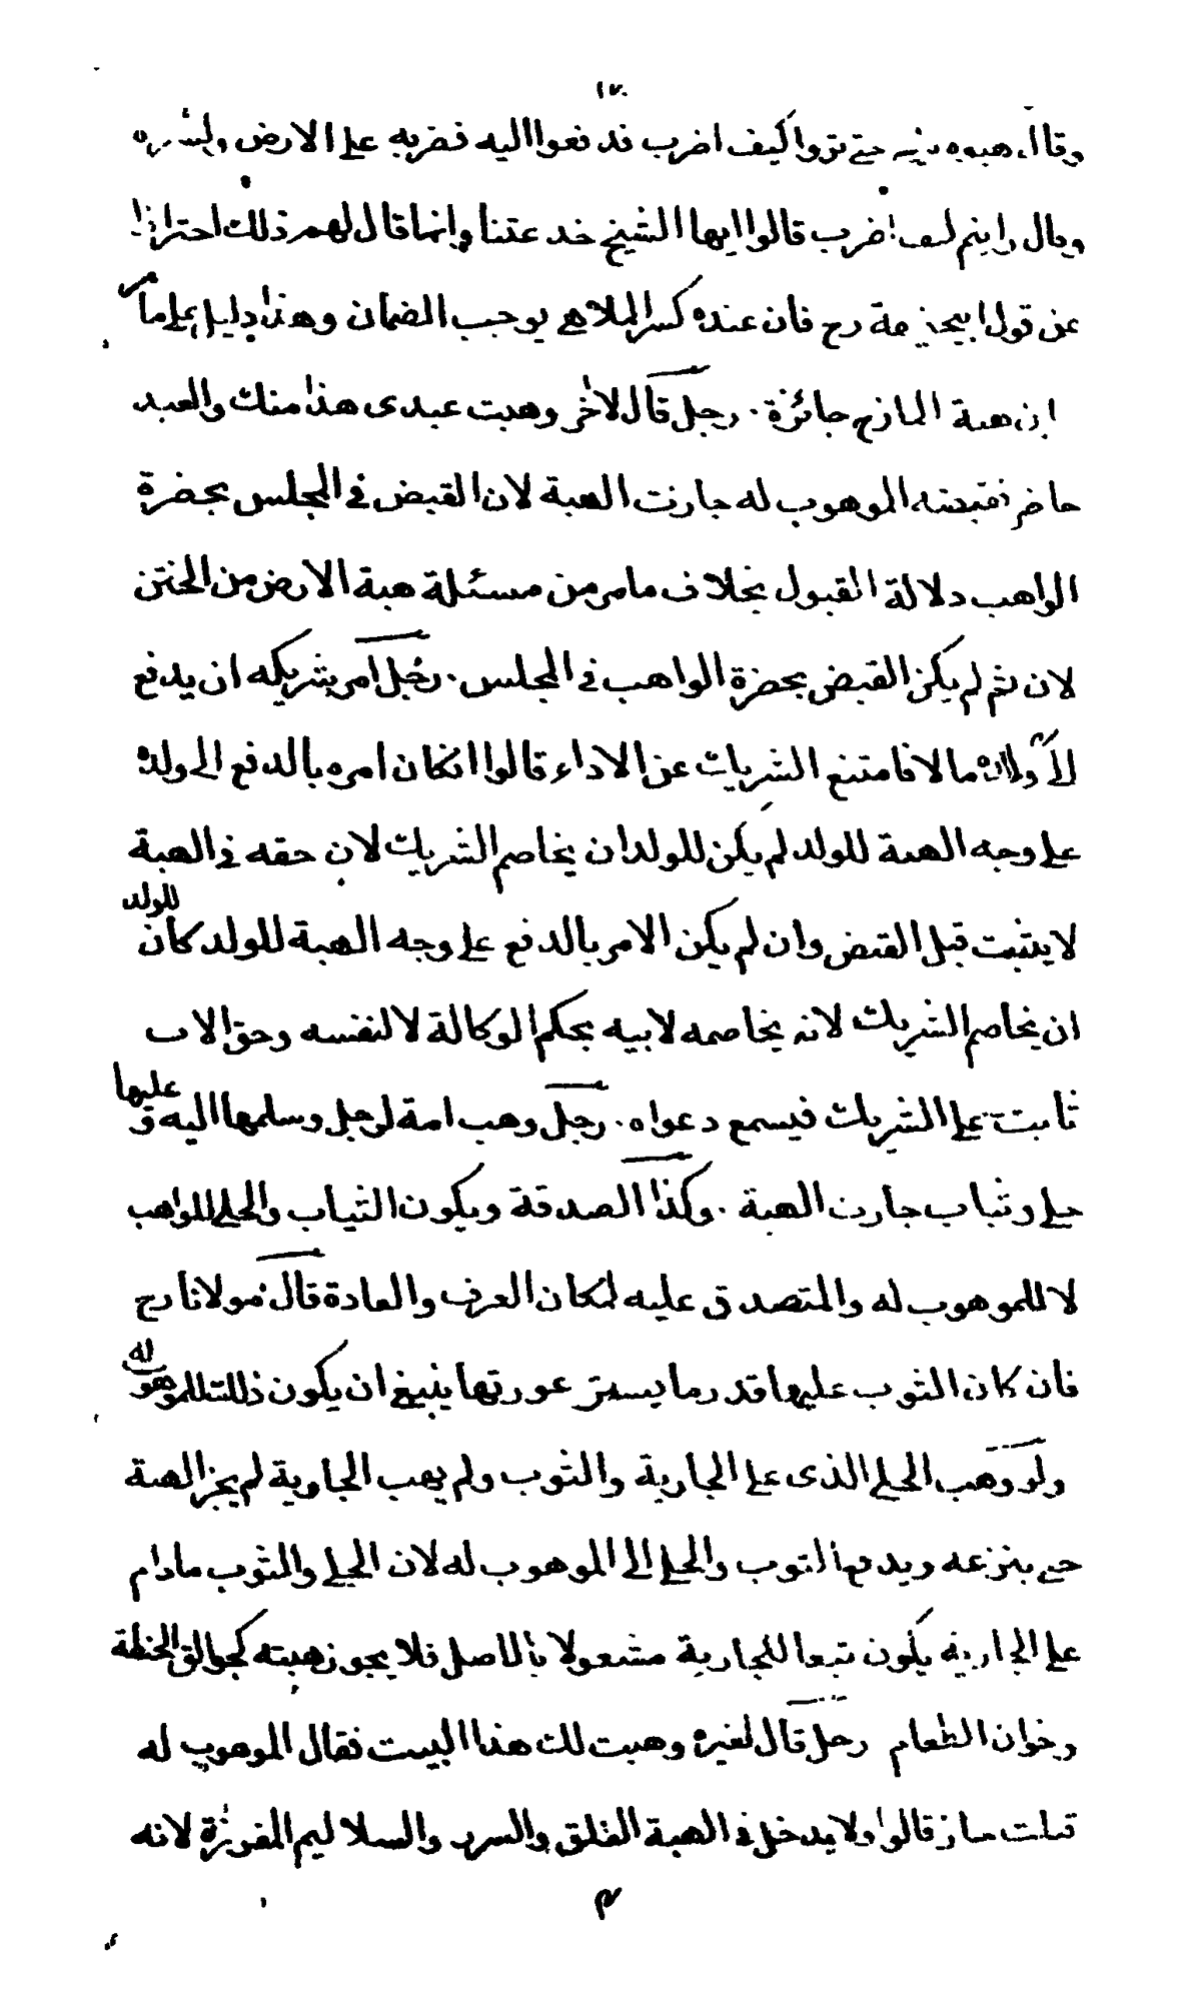 ١٧٠
وقال هبوه منى حتى تروا كيف اضرب فدفعوا اليه فضربه على الارض وكسره
وقال رايتم كيف اضرب قالوا ايها الشيخ خدعتنا وانما قال لهم ذلك احترازا
عن قول ابيحنيفة رح فان عنده كسر الملاهى يوجب الضمان وهذا دليل على ما مر
ان هبة المازح جائزة . رجل قال لاخر وهبت عبدى هذا منك والعبد
حاضر فقبضه الموهوب له جازت الهبة لان القبض فى المجلس بحضرة
الواهب دلالة القبول بخلاف ما مر من مسئلة هبة الارض من الختن
لان ثم لم يكن القبض بحضرة الواهب فى المجلس . رجل امر شريكه ان يدفع
الى ولده مالا فامتنع الشريك عن الاداء قالوا انكان امره بالدفع الى ولده
على وجه الهبة للولد لم يكن للولد ان يخاصم الشريك لان حقه فى الهبة
لا يثبت قبل القبض وان لم يكن الامر بالدفع على وجه الهبة للولد كان للولد
ان يخاصم الشريك لانه يخاصمه لابيه بحكم الوكالة لا لنفسه وحق الاب
ثابت على الشريك فيسمع دعواه . رجل وهب امة لرجل وسلمها اليه و عليها
حلى وثياب جازت الهبة . وكذا الصدقة ويكون الثياب والحلى للواهب
لا للموهوب له والمتصدق عليه لمكان العرف والعادة قال مولانا رح
فان كان الثوب عليها قدر ما يستر عورتها ينبغى ان يكون ذلك للموهوب له
ولو وهب الحلى الذى على الجارية والثوب ولم يهب الجارية لم يجز الهبة
حتى ينزعه ويدفع الثوب والحلى الى الموهوب له لان الحلى والثوب مادام
على الجارية يكون تبعا للجارية مشغولا بالاصل فلا يجوز هبته كجوالق الحنطة
وخوان الطعام رجل قال لغيره وهبت لك هذا البيت فقال الموهوب له
قبلت جاز قالوا ولا يدخل فى الهبة الغلق والسرر والسلاليم المغروزة لانه